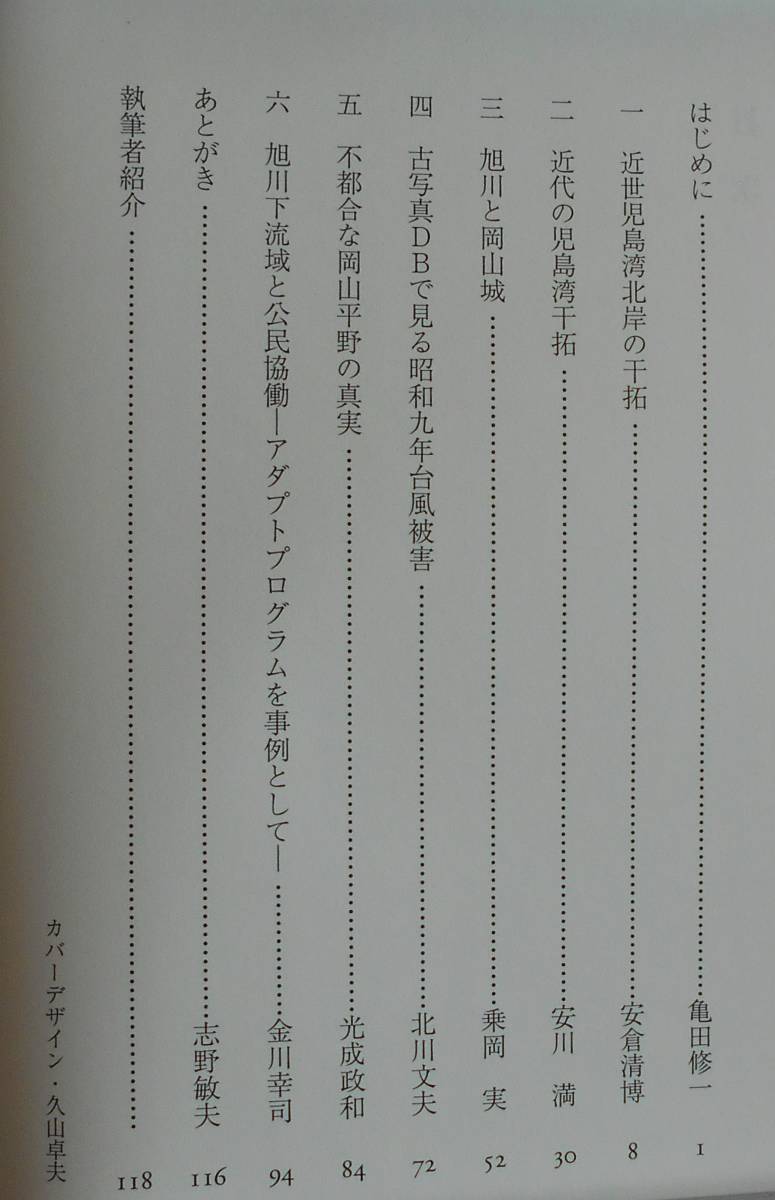 はじめに……………………亀田修一 1
一 近世児島湾北岸の干拓……………………安倉清博 8
二 近代の児島湾干拓……………………安川 満 30
三 旭川と岡山城……………………乗岡 実 52
四 古写真DBで見る昭和九年台風被害……………………北川文夫 72
五 不都合な岡山平野の真実……………………光成政和 84
六 旭川下流域と公民協働―アダプトプログラムを事例として―……………金川幸司 94
あとがき……………………志野敏夫 116
執筆者紹介……………………118
カバーデザイン・久山卓夫